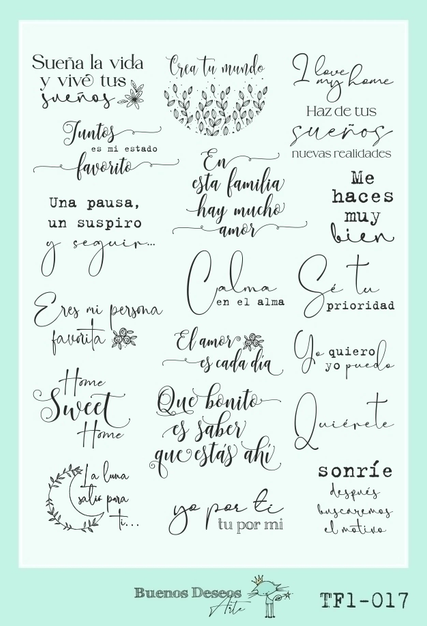 Sueña la vida
y vivé tus
sueños
Crea tu mundo
I love
my home
Haz de tus
sueños
nuevas realidades
Juntos
es mi estado
favorito
En
esta familia
hay mucho
amor
Me
haces
muy
bien
Una pausa,
un suspiro
y seguir...
Calma
en el alma
Sé tu
prioridad
Eres mi persona
favorita
El amor
es cada día
Yo quiero
yo puedo
Home
Sweet
Home
Que bonito
es saber
que estás ahí
Quiérete
La luna
salio para
ti...
yo por ti
tu por mi
sonríe
después
buscaremos
el motivo
Buenos Deseos
Arte
TF1-017